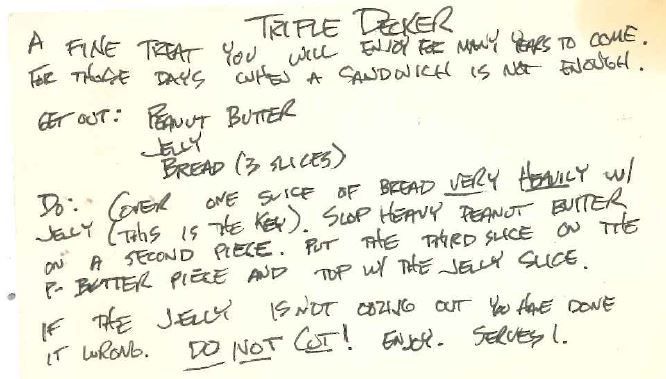 TRIPLE DECKER
A FINE TREAT YOU WILL ENJOY FOR MANY YEARS TO COME.
FOR THOSE DAYS WHEN A SANDWICH IS NOT ENOUGH.
GET OUT: PEANUT BUTTER
JELLY
BREAD (3 SLICES)
DO: COVER ONE SLICE OF BREAD VERY HEAVILY W/
JELLY (THIS IS THE KEY). SLOP HEAVY PEANUT BUTTER
ON A SECOND PIECE. PUT THE THIRD SLICE ON THE
P-BUTTER PIECE AND TOP W/ THE JELLY SLICE.
IF THE JELLY IS NOT OOZING OUT YOU HAVE DONE
IT WRONG. DO NOT CUT! ENJOY. SERVES 1.